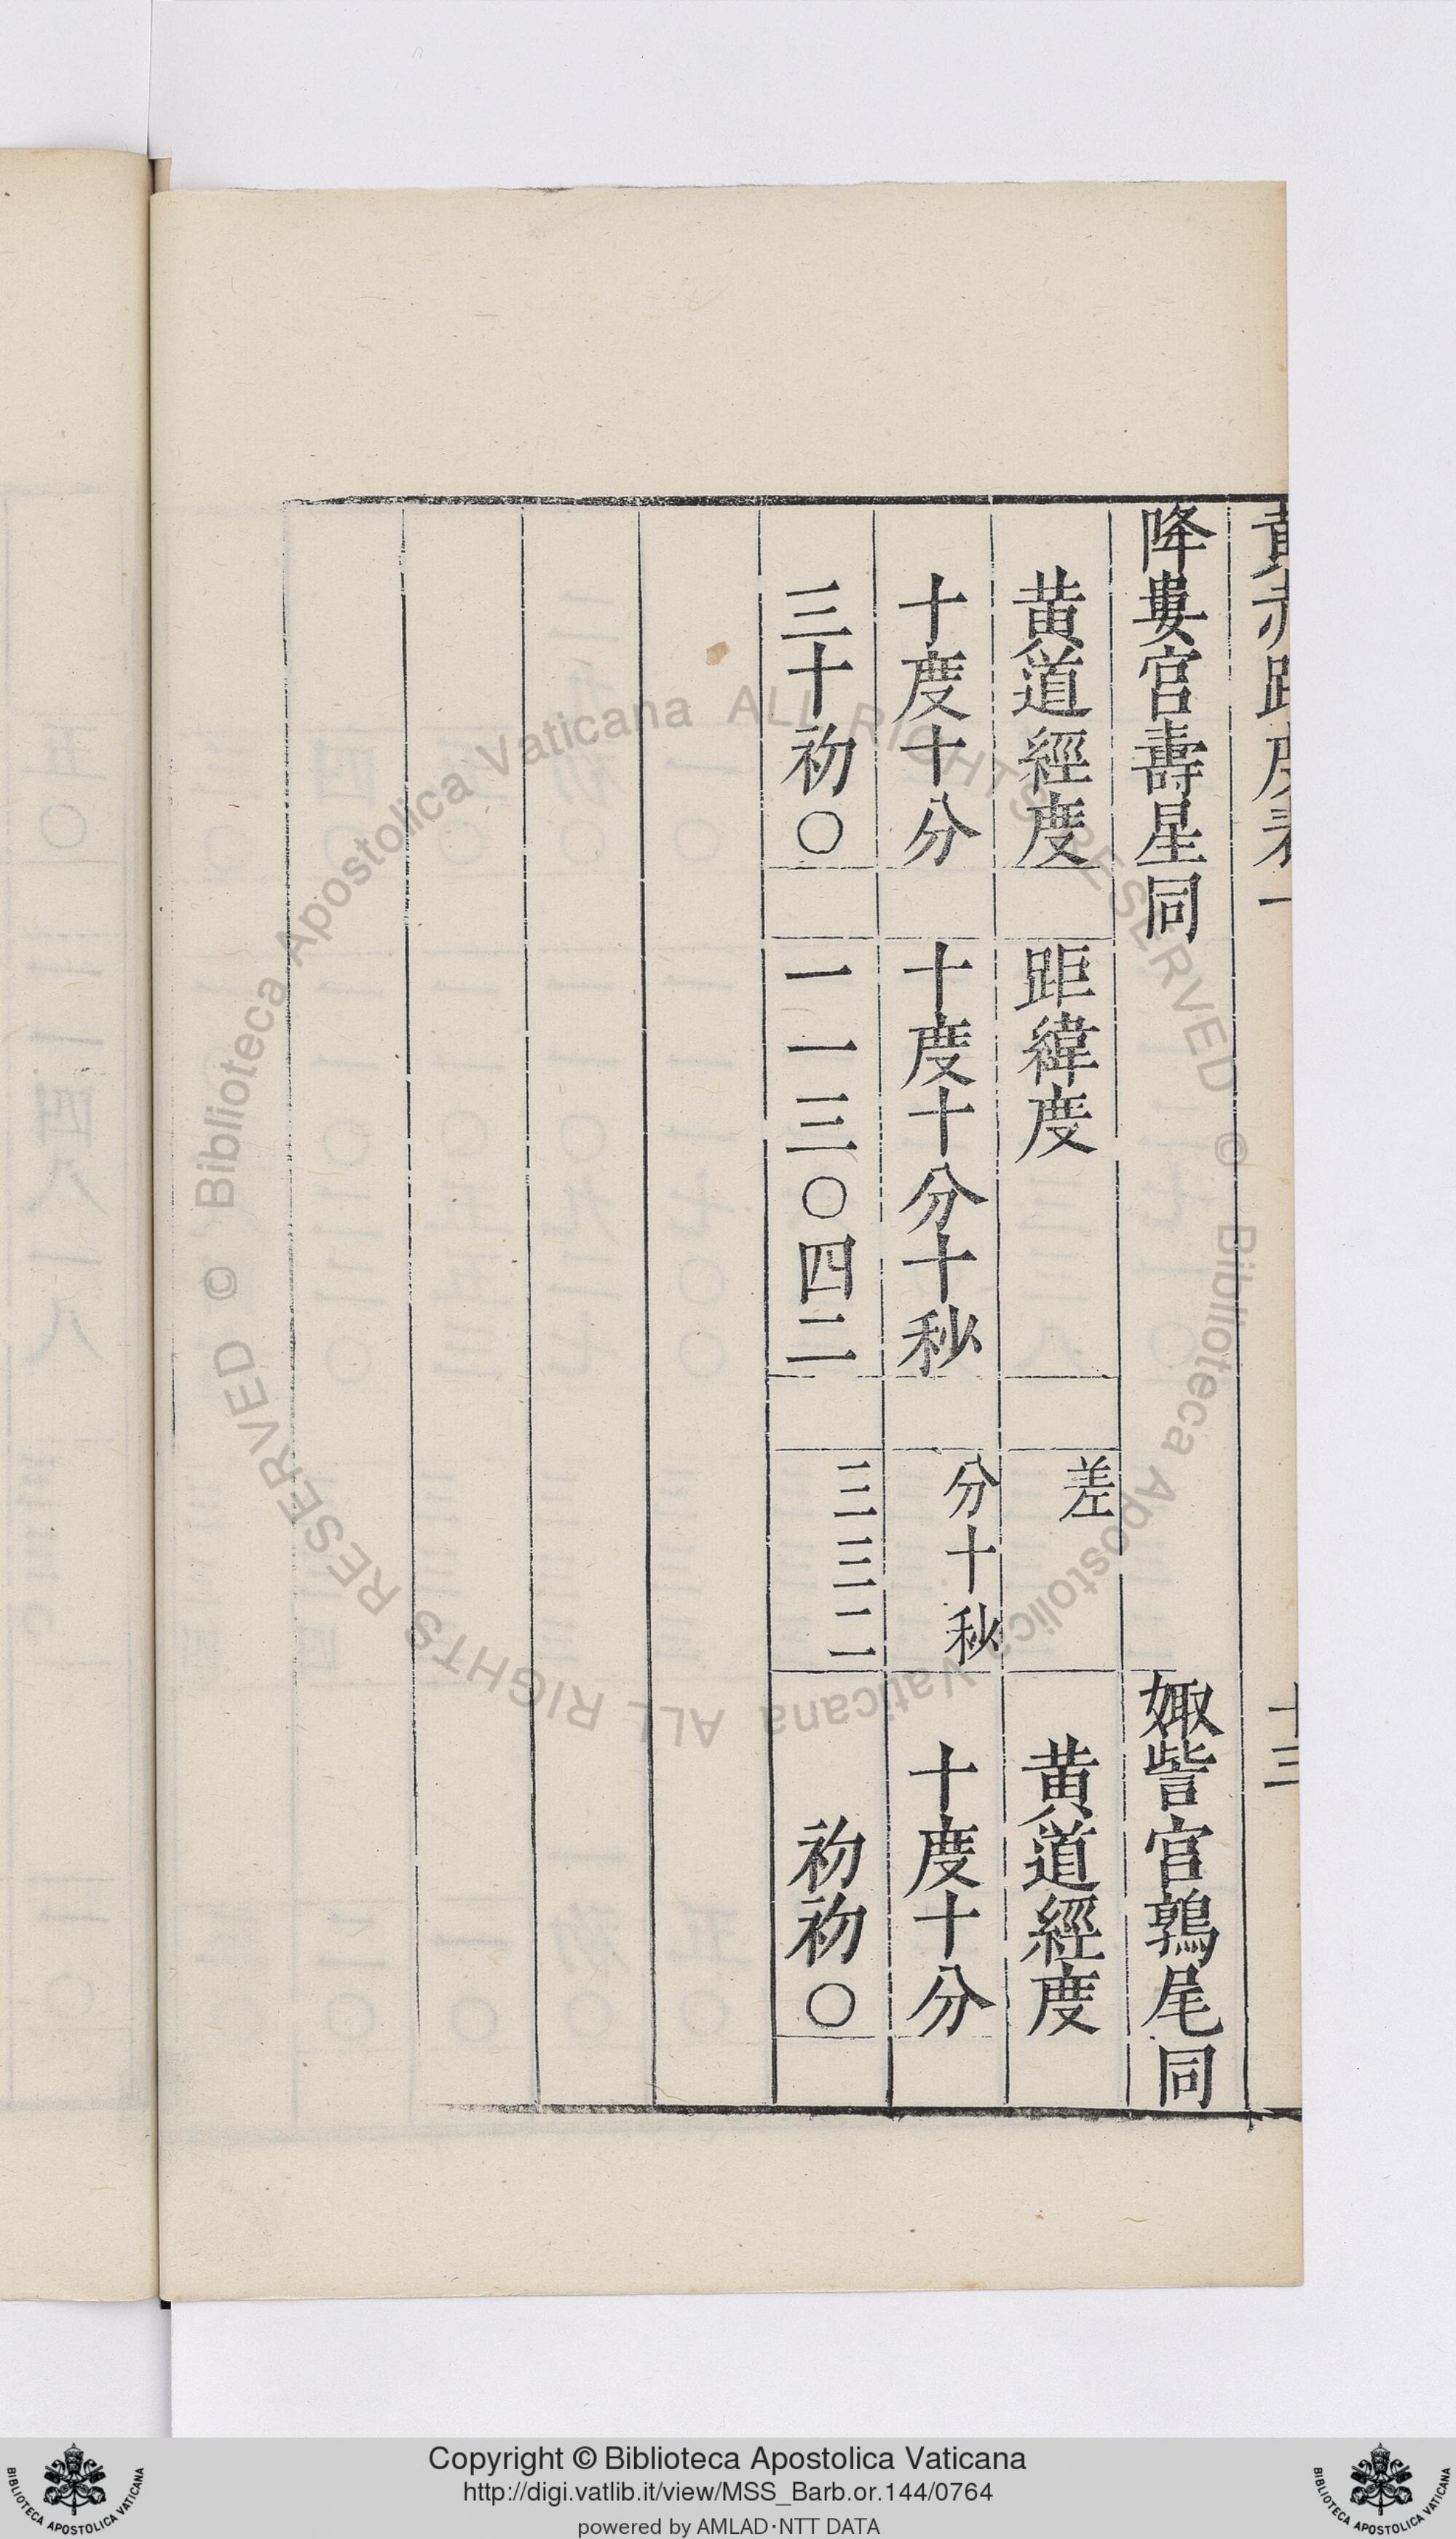 黃赤距度表一 十三
降婁宮壽星同 娵訾宮鶉尾同
黃道經度 距緯度 差 黃道經度
十度十分 十度十分十秒 分十秒 十度十分
三十初〇 一一三〇四二 三三二 初初〇
Copyright © Biblioteca Apostolica Vaticana
http://digi.vatlib.it/view/MSS_Barb.or.144/0764
powered by AMLAD·NTT DATA
© Biblioteca Apostolica Vaticana ALL RIGHTS RESERVED
© Biblioteca Apostolica Vaticana ALL RIGHTS RESERVED
BIBLIOTECA APOSTOLICA VATICANA
BIBLIOTECA APOSTOLICA VATICANA